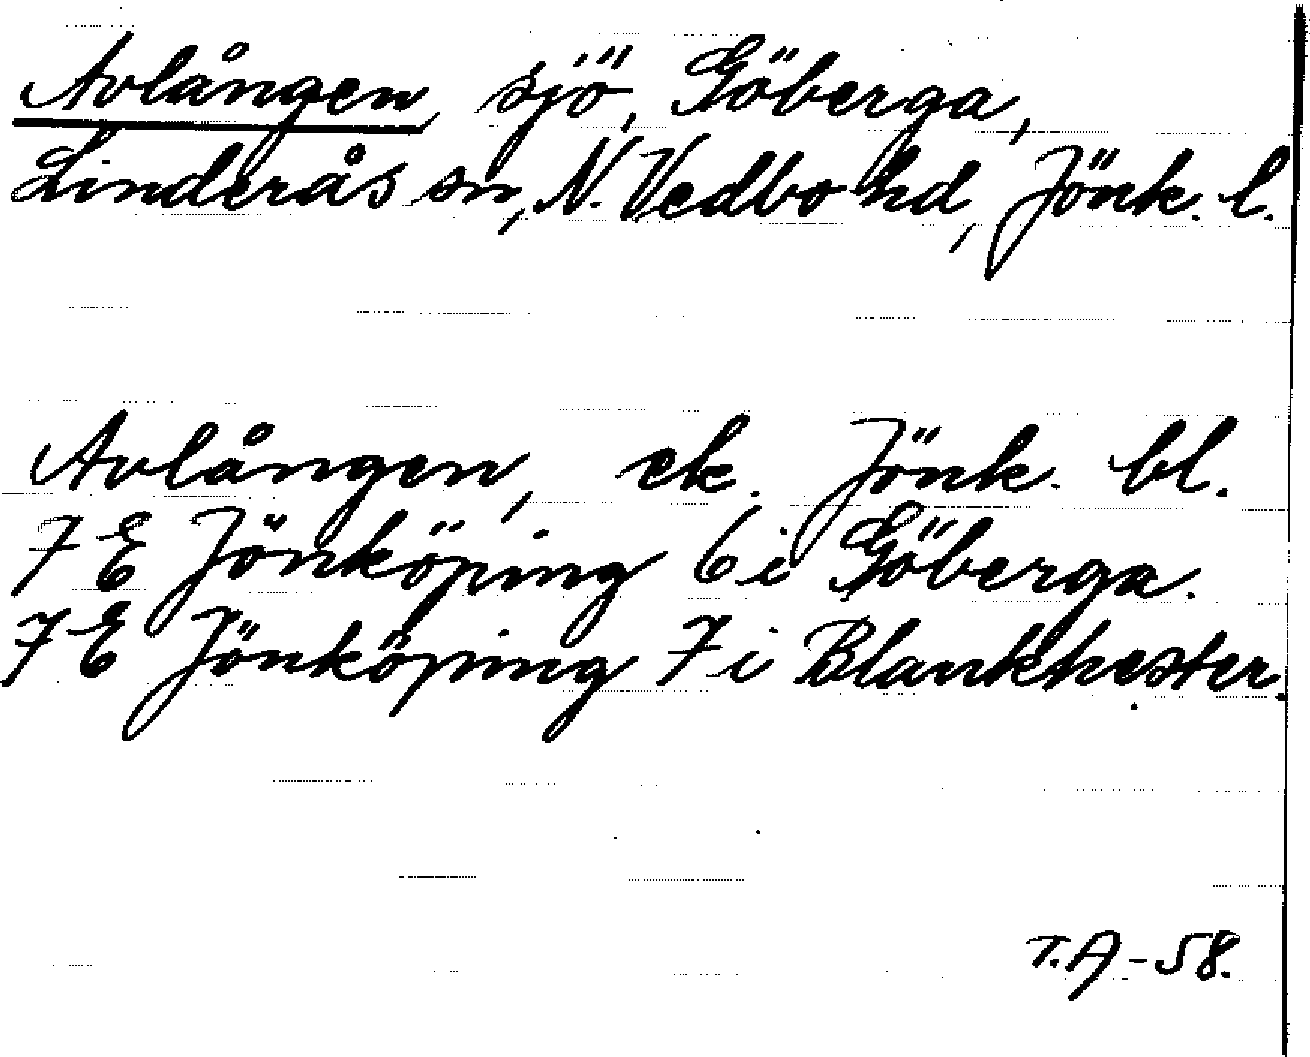 Avlången, sjö, Göberga,
Linderås sn, N. Vedbo hd, Jönk. l.
Avlången, ek. Jönk. bl.
7 E Jönköping 6 i Göberga.
7 E Jönköping 7 i Blankhester.
T.A-58.